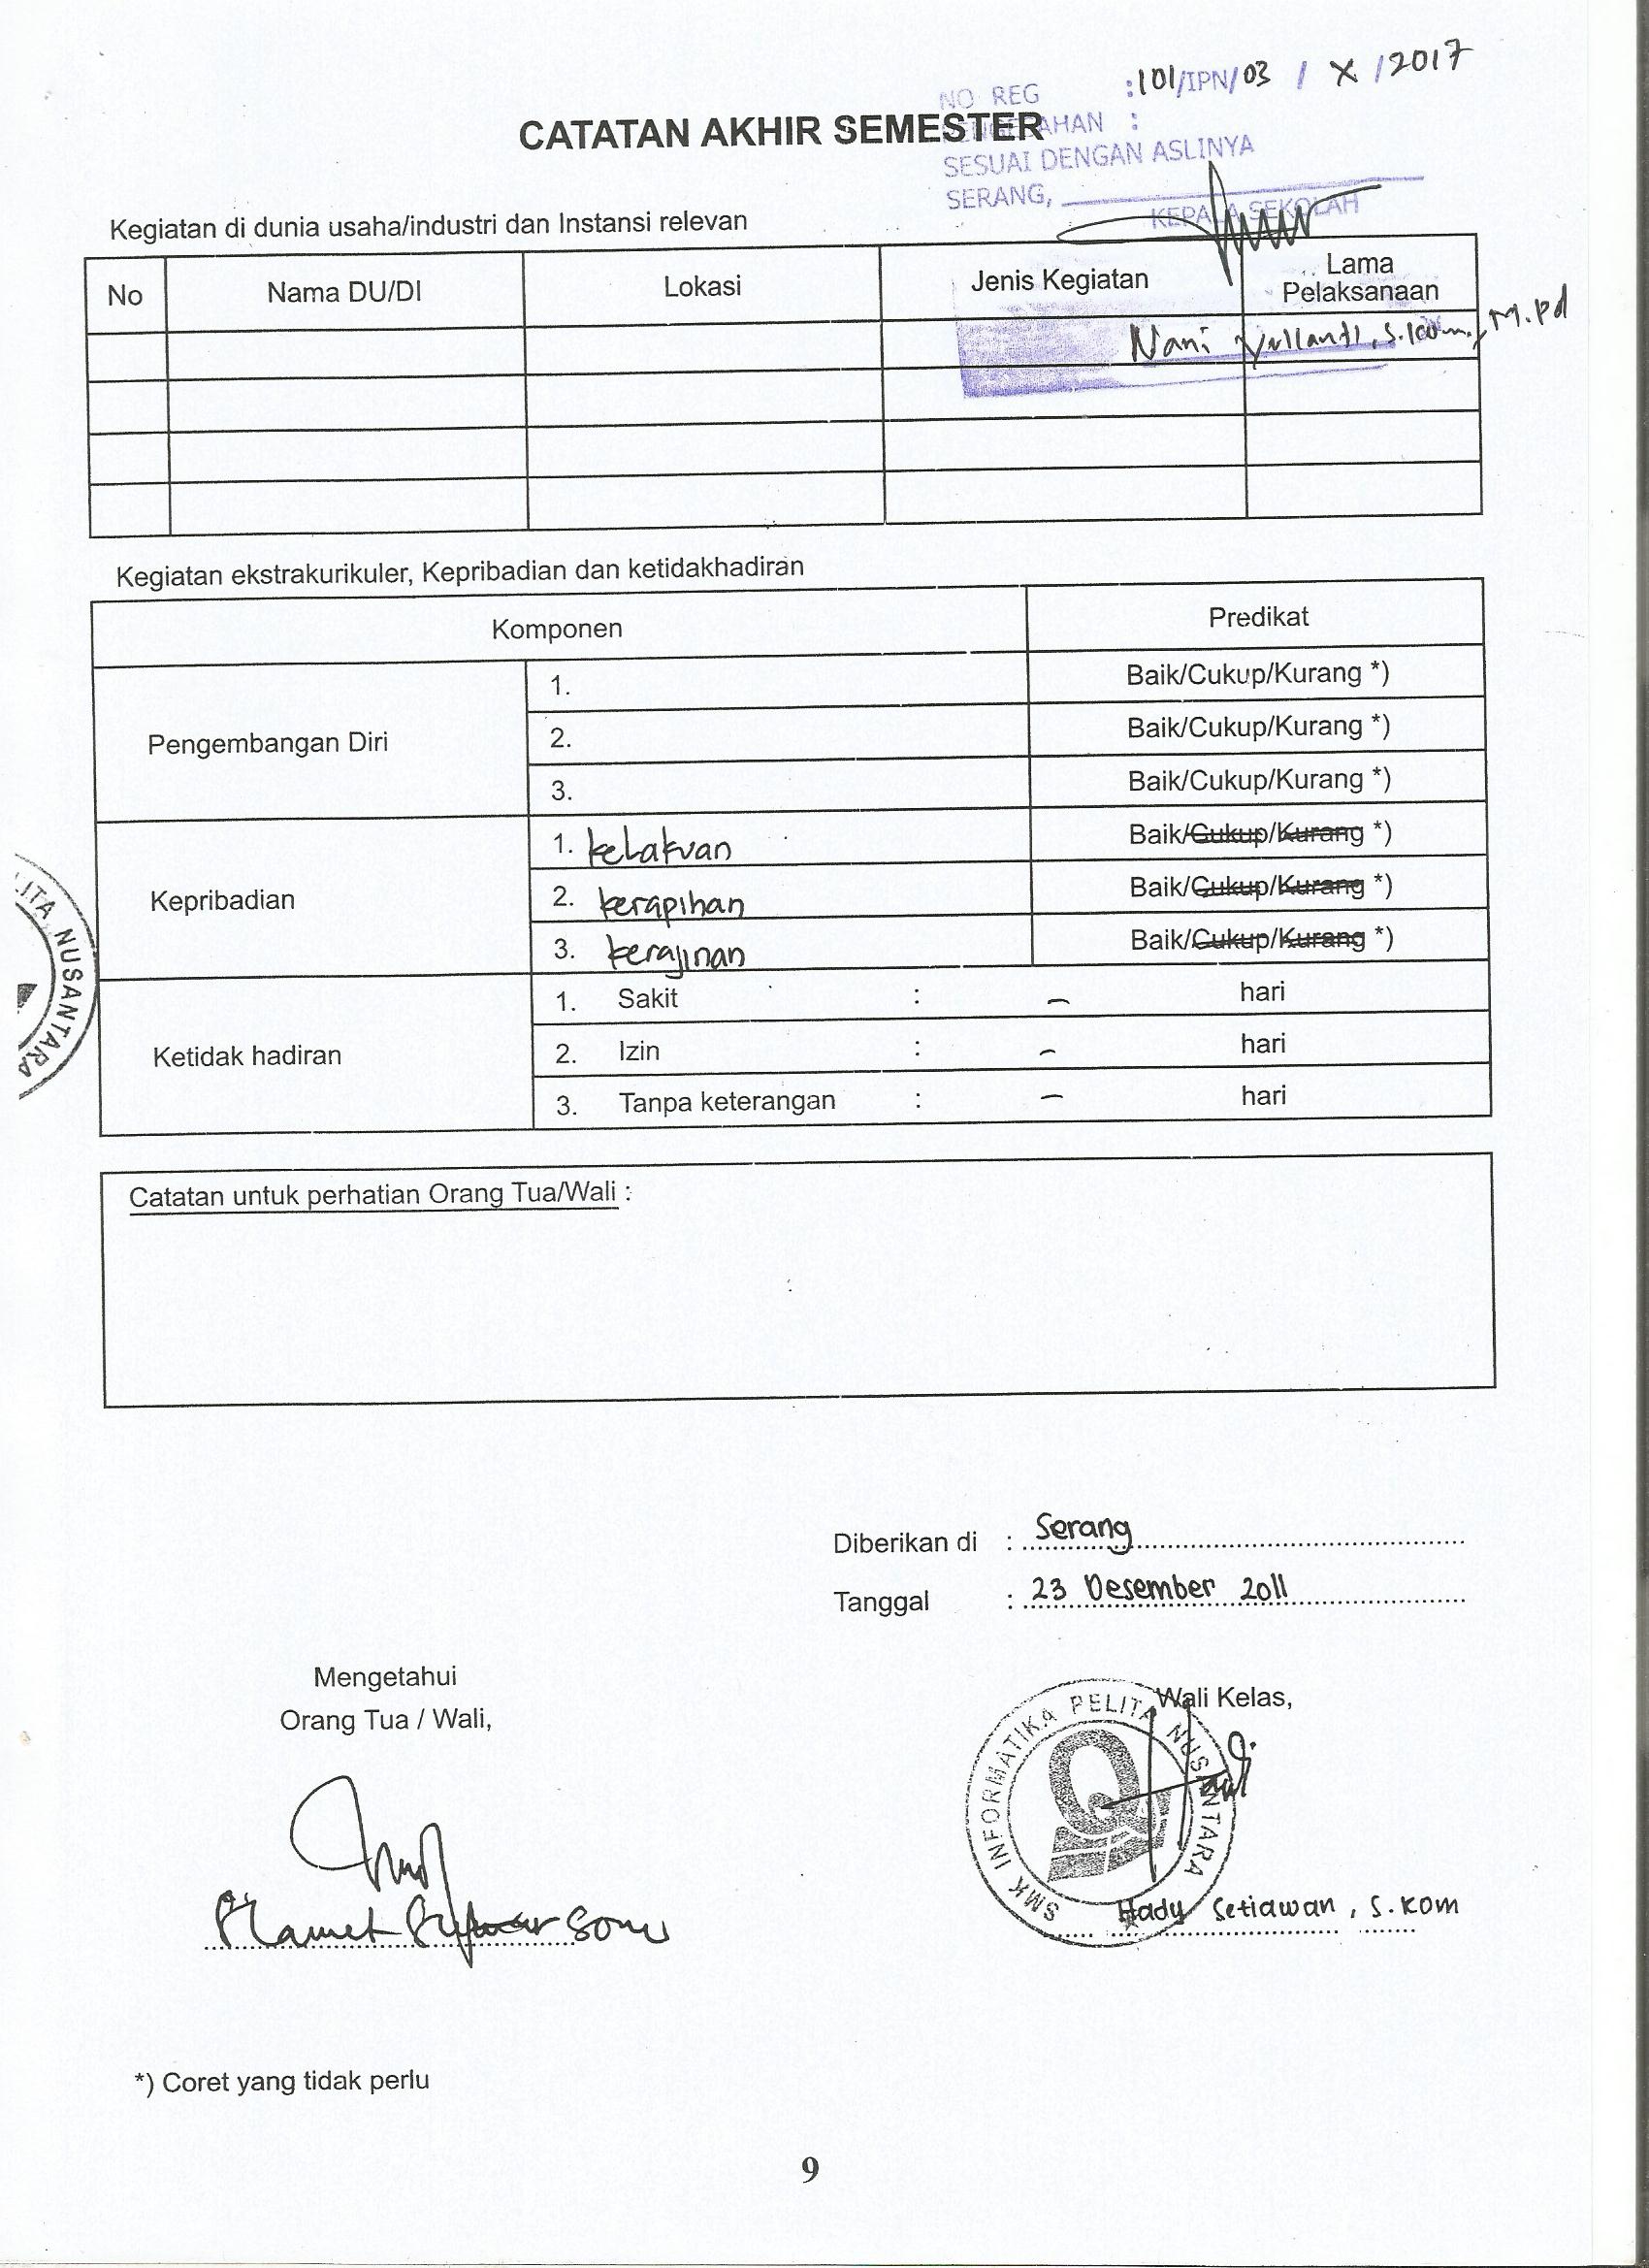 NO REG : 101/IPN/03 / X / 2017
CATATAN AKHIR SEMESTER
PENGESAHAN :
SESUAI DENGAN ASLINYA
SERANG,
KEPALA SEKOLAH
Kegiatan di dunia usaha/industri dan Instansi relevan
No Nama DU/DI Lokasi Jenis Kegiatan Lama Pelaksanaan
Nani Yulianti, S.Kom., M.Pd
Kegiatan ekstrakurikuler, Kepribadian dan ketidakhadiran
Komponen Predikat
Pengembangan Diri
1. Baik/Cukup/Kurang *)
2. Baik/Cukup/Kurang *)
3. Baik/Cukup/Kurang *)
Kepribadian
1. kelakuan Baik/Cukup/Kurang *)
2. kerapihan Baik/Cukup/Kurang *)
3. kerajinan Baik/Cukup/Kurang *)
Ketidak hadiran
1. Sakit : – hari
2. Izin : – hari
3. Tanpa keterangan : – hari
LITA NUSANTARA
Catatan untuk perhatian Orang Tua/Wali :
Diberikan di : Serang
Tanggal : 23 Desember 2011
Mengetahui
Orang Tua / Wali,
Wali Kelas,
SMK INFORMATIKA PELITA NUSANTARA
Slamet
Hady Setiawan, S.KOM
*) Coret yang tidak perlu
9